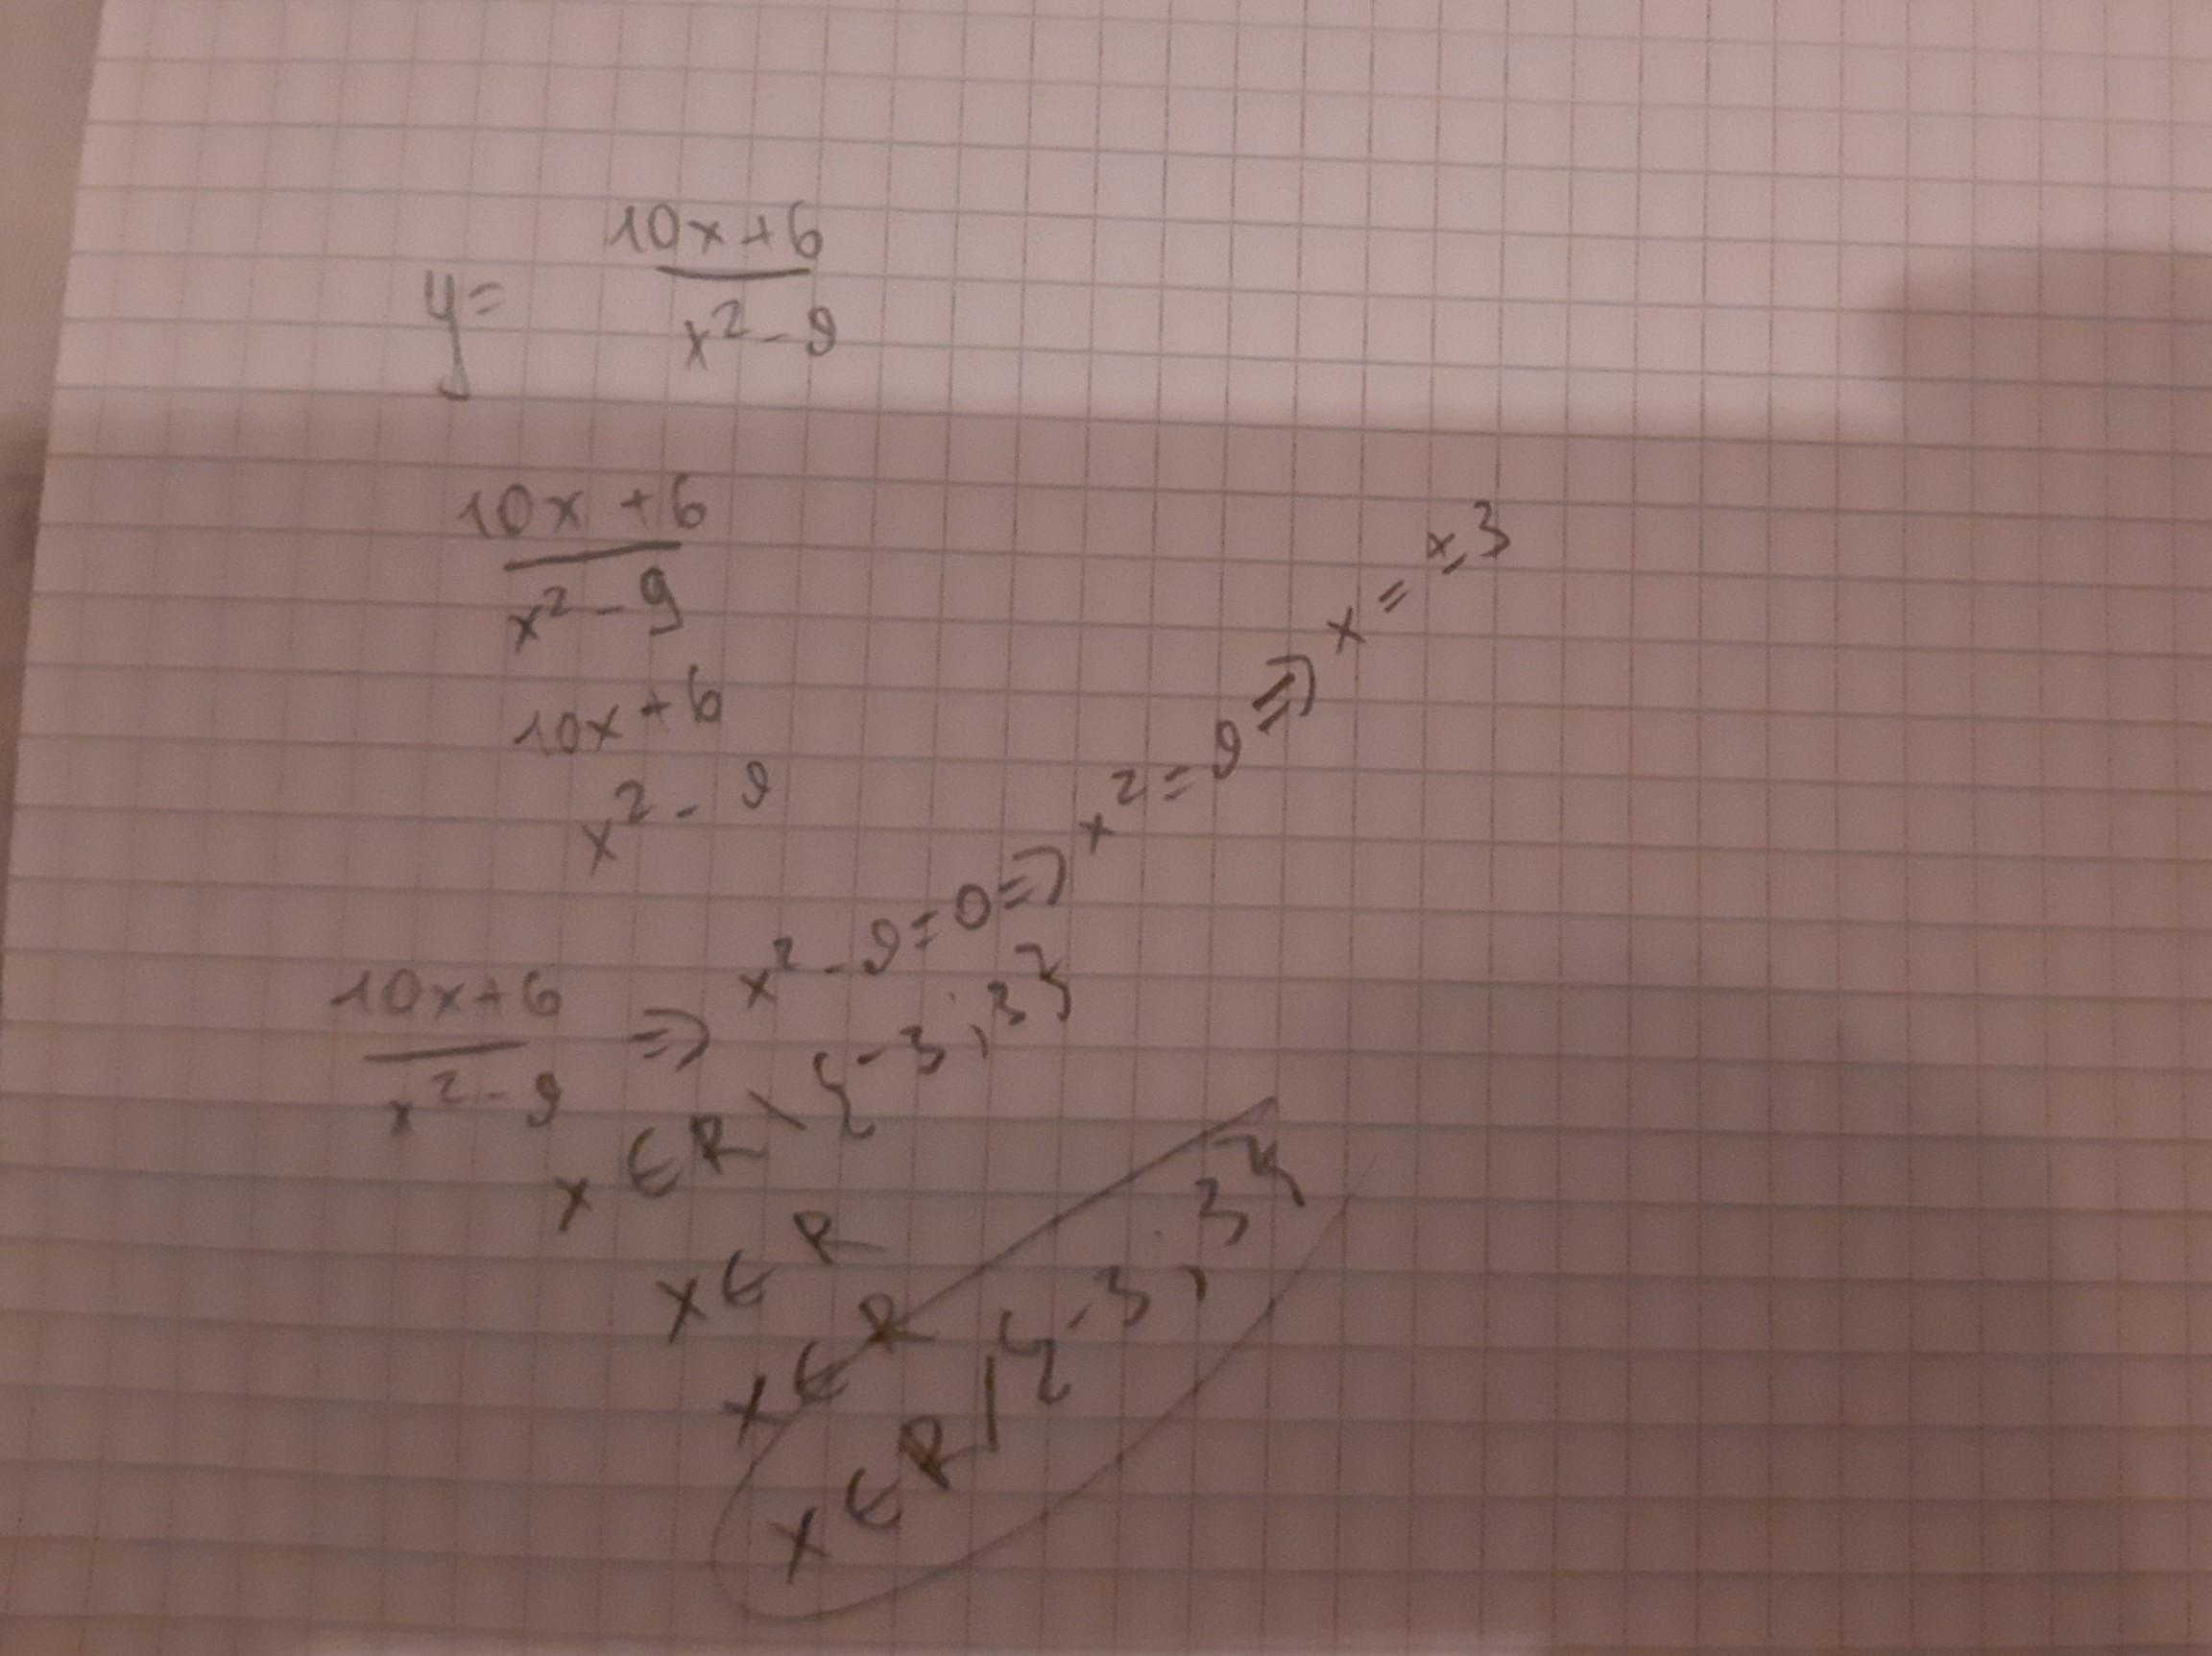 y= 10x+6
x² - 9
10x +6
x² - 9
10x+6
x² - 9
10x+6
x² - 9 => x² - 9 = 0 => x² = 9 => x = ±3
x ∈ R \ {-3;3}
x ∈ R
x ∈ R
x ∈ R | {-3;3}